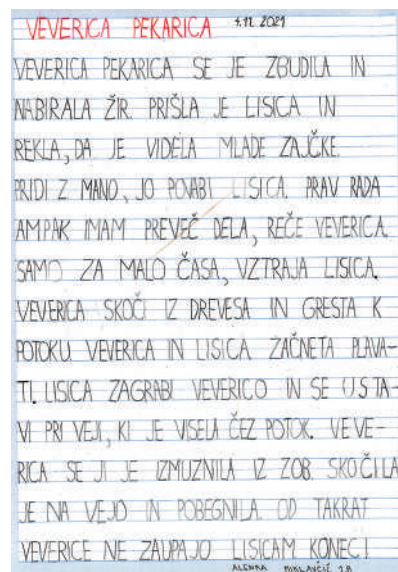 VEVERICA PEKARICA 4.11. 2021
VEVERICA PEKARICA SE JE ZBUDILA IN
NABIRALA ŽIR. PRIŠLA JE LISICA IN
REKLA, DA JE VIDELA MLADE ZAJČKE.
PRIDI Z MANO, JO POVABI LISICA. PRAV RADA
AMPAK IMAM PREVEČ DELA, REČE VEVERICA.
SAMO ZA MALO ČASA, VZTRAJA LISICA.
VEVERICA SKOČI IZ DREVESA IN GRESTA K
POTOKU. VEVERICA IN LISICA ZAČNETA PLAVA-
TI. LISICA ZAGRABI VEVERICO IN SE USTA-
VI PRI VEJI, KI JE VISELA ČEZ POTOK. VEVE-
RICA SE JI JE IZMUZNILA IZ ZOB. SKOČILA
JE NA VEJO IN POBEGNILA. OD TAKRAT
VEVERICE NE ZAUPAJO LISICAM. KONEC!
ALENKA MIKLAVČIČ